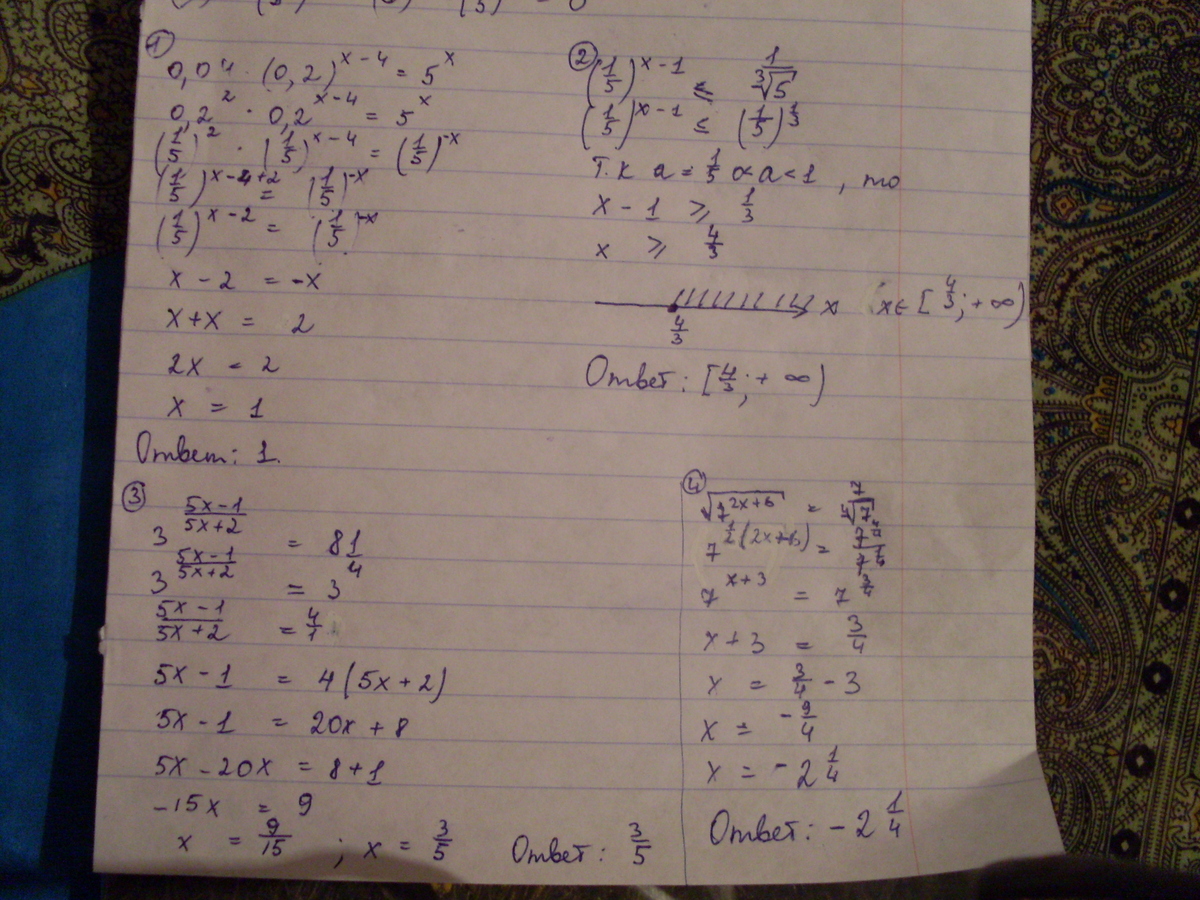 ①
0,04 · (0,2)^(x-4) = 5^x
0,2^2 · 0,2^(x-4) = 5^x
(1/5)^2 · (1/5)^(x-4) = (1/5)^(-x)
(1/5)^(x-4+2) = (1/5)^(-x)
(1/5)^(x-2) = (1/5)^(-x)
x - 2 = -x
x + x = 2
2x = 2
x = 1
Ответ: 1.
②
(1/5)^(x-1) ≤ 1/∛5
(1/5)^(x-1) ≤ (1/5)^(1/3)
Т.к a = 1/5 a < 1, то
x - 1 ≥ 1/3
x ≥ 4/3
4/3 x x∈[4/3; +∞)
Ответ: [4/3; +∞)
③
3^((5x-1)/(5x+2)) = 81
3^((5x-1)/(5x+2)) = 3^4
(5x-1)/(5x+2) = 4/1
5x - 1 = 4(5x+2)
5x - 1 = 20x + 8
5x - 20x = 8 + 1
-15x = 9
x = 9/15 ; x = 3/5 Ответ: 3/5
④
√(7^(2x+6)) = 7/⁴√7
7^(1/2(2x+6)) =
7^(x+3) = 7^(3/4)
x + 3 = 3/4
x = 3/4 - 3
x = -9/4
x = -2 1/4
Ответ: -2 1/4